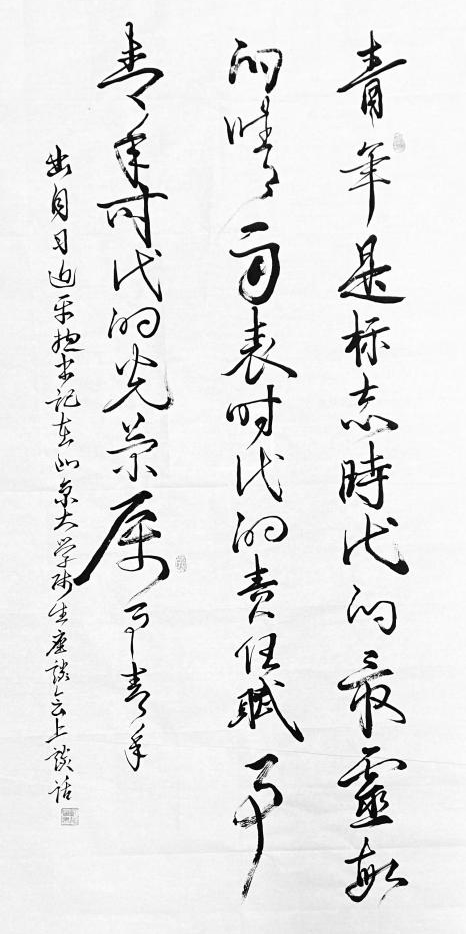 青年是标志時代的最靈敏
的晴雨表时代的责任赋予
青年时代的光荣属于青年
出自习近平总书记在北京大学师生座谈会上谈话